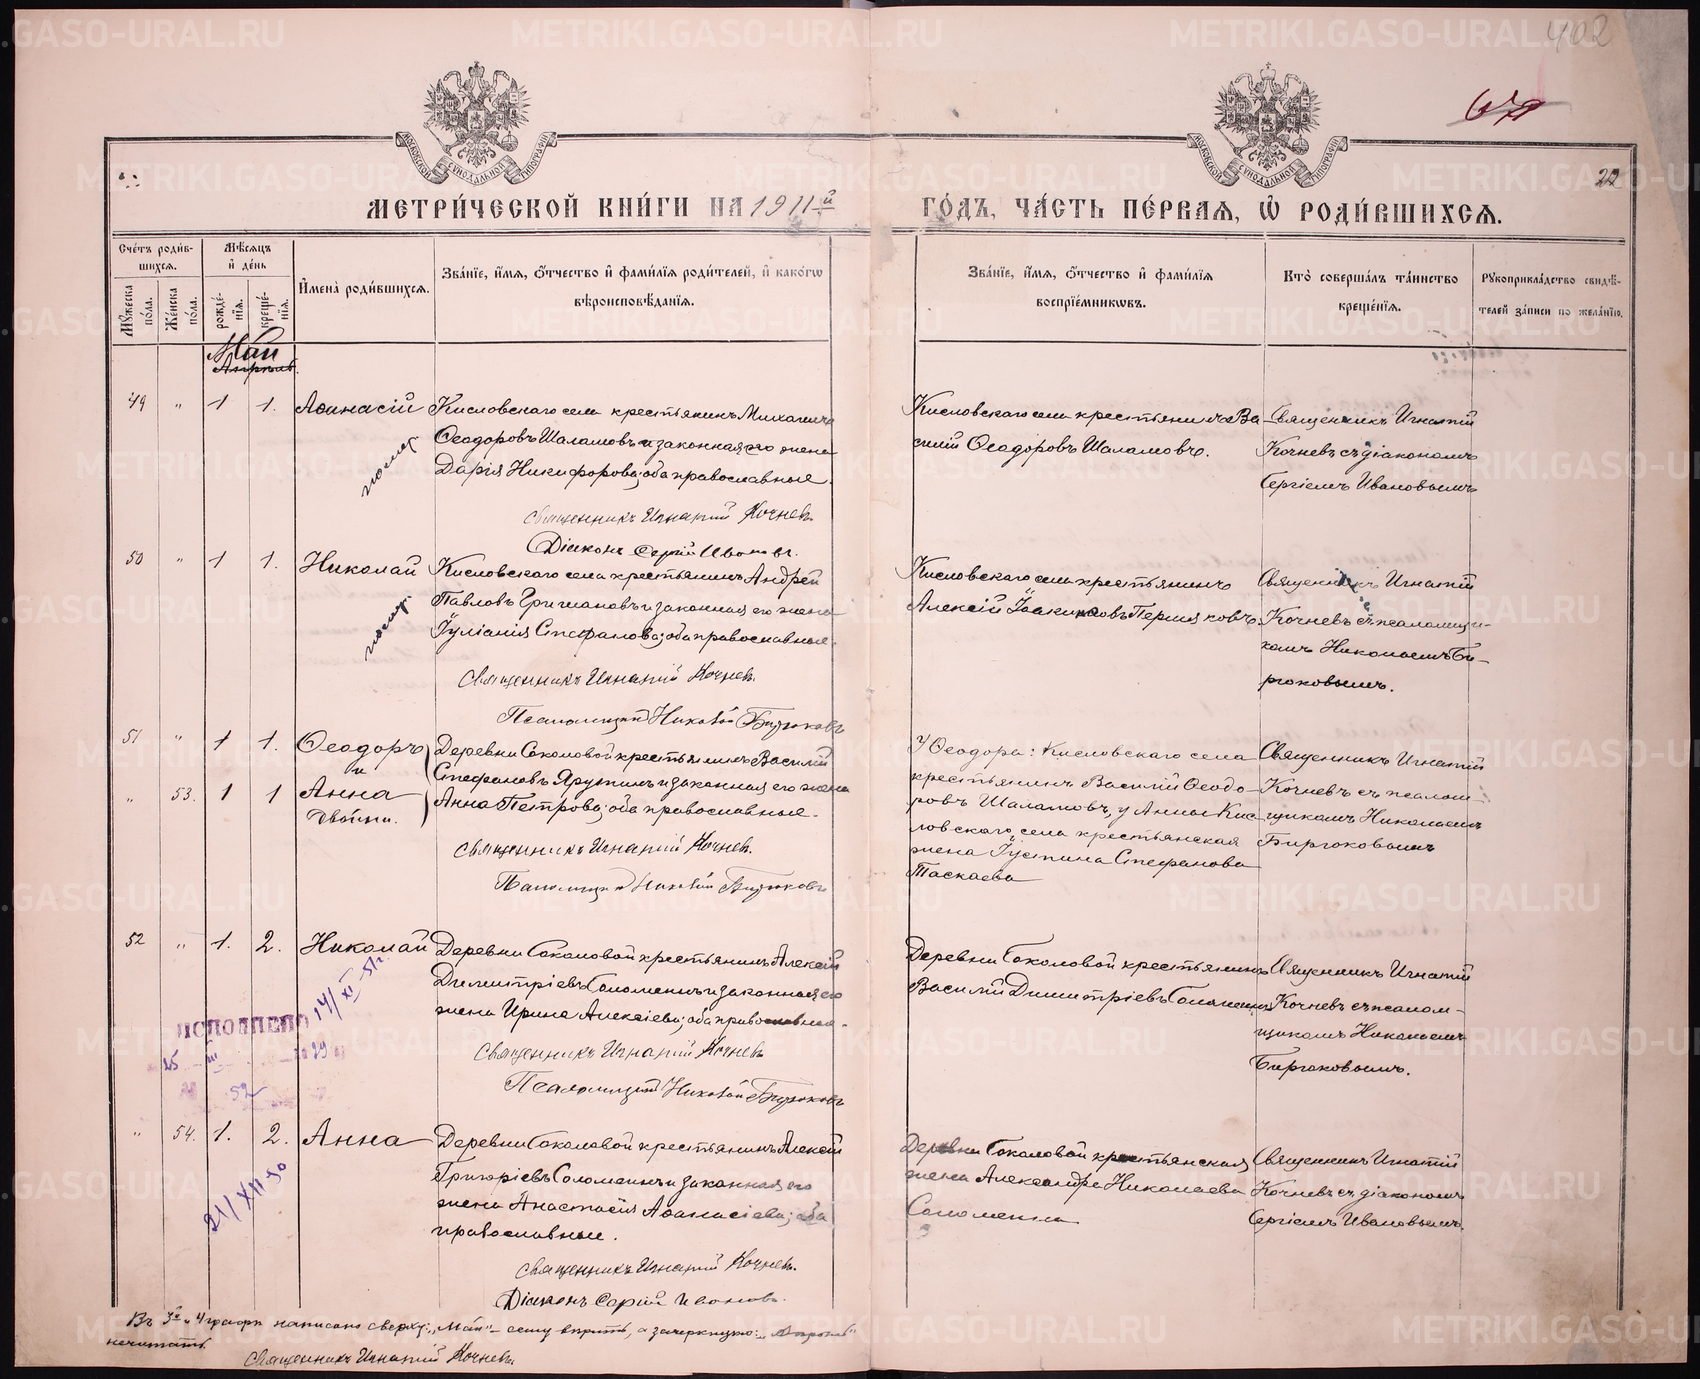 402
22
МЕТРИ́ЧЕСКОЙ КНИ́ГИ НА 1911-й
ГО́ДЪ, ЧА́СТЬ ПЕ́РВАЯ, Ѡ҆ РОДИ́ВШИХСЯ.
МОСКОВСКОЙ СѴНОДАЛЬНОЙ ТИПОГРАФІИ
МОСКОВСКОЙ СѴНОДАЛЬНОЙ ТИПОГРАФІИ
Сче́тъ роди́в-
шихся.
Мѣ́сяцъ
и҆ де́нь
Му́жеска по́ла.
Же́нска по́ла.
рожде́-
нїя.
креще́-
нїя.
И҆мена̀ роди́вшихся.
Зва́нїе, и҆́мя, ѻ҆́тчество и҆ фами́лїя роди́телей, и҆ како́гѡ
вѣроисповѣ́данїя.
Зва́нїе, и҆́мя, ѻ҆́тчество и҆ фами́лїя
воспрїе́мникѡвъ.
Кто̀ соверша́лъ та́инство
креще́нїя.
Рукоприкла́дство свидѣ́-
телей за́писи по жела́нїю.
Май
Апрѣль.
49 " 1 1. Аѳанасій
Кисловскаго села крестьянинъ Михаилъ
Ѳеодоровъ Шаламовъ и законная его жена
Дарія Никифорова; оба православные.
Священникъ Игнатій Кочневъ.
Діаконъ Сергій Ивановъ.
Кисловскаго села крестьянинъ Ва-
силій Ѳеодоровъ Шаламовъ.
Священникъ Игнатій
Кочневъ съ діакономъ
Сергіемъ Ивановымъ
50 " 1 1. Николай
Кисловскаго села крестьянинъ Андрей
Павловъ и законная его жена
Іуліанія Стефанова; оба православные.
Священникъ Игнатій Кочневъ.
Псаломщикъ Николай Бирюковъ
Кисловскаго села крестьянинъ
Алексій Іоакимовъ Перминковъ.
Священникъ Игнатій
Кочневъ съ псаломщи-
комъ Николаемъ Би-
рюковымъ.
51 " 1 1. Ѳеодоръ
и
" 53. 1 1 Анна
двойни.
Деревни Соколовой крестьянинъ Василій
Стефановъ и законная его жена
Анна Петрова; оба православные.
Священникъ Игнатій Кочневъ.
Псаломщикъ Николай Бирюковъ
У Ѳеодора: Кисловскаго села
крестьянинъ Василій Ѳеодо-
ровъ Шаламовъ, у Анны Кис-
ловскаго села крестьянская
жена Іустина Стефанова
Таскаева
Священникъ Игнатій
Кочневъ съ псалом-
щикомъ Николаемъ
Бирюковымъ
52 " 1. 2. Николай
Деревни Соколовой крестьянинъ Алексій
Димитріевъ Соломеинъ и законная его
жена Ирина Алексіева; оба православные.
Священникъ Игнатій Кочневъ
Псаломщикъ Николай Бирюковъ
Деревни Соколовой крестьянинъ
Василій Димитріевъ Соломеинъ
Священникъ Игнатій
Кочневъ съ псалом-
щикомъ Николаемъ
Бирюковымъ.
14/XI-51г.
ИСПОЛНЕНО
25 III 29
52
" 54. 1. 2. Анна
Деревни Соколовой крестьянинъ Алексій
Григоріевъ Соломеинъ и законная его
жена Анастасія Аѳанасіева; оба
православные.
Священникъ Игнатій Кочневъ.
Діаконъ Сергій Ивановъ.
Деревни Соколовой крестьянская
жена Александра Николаева
Соломеина
Священникъ Игнатій
Кочневъ съ діакономъ
Сергіемъ Ивановымъ.
21/XII 50
Въ 3й и 4 графѣ написано сверху: „Май" – сему вѣрить, а зачеркнутое: „Апрѣль"
нечитать.
Священникъ Игнатій Кочневъ
METRIKI.GASO-URAL.RU